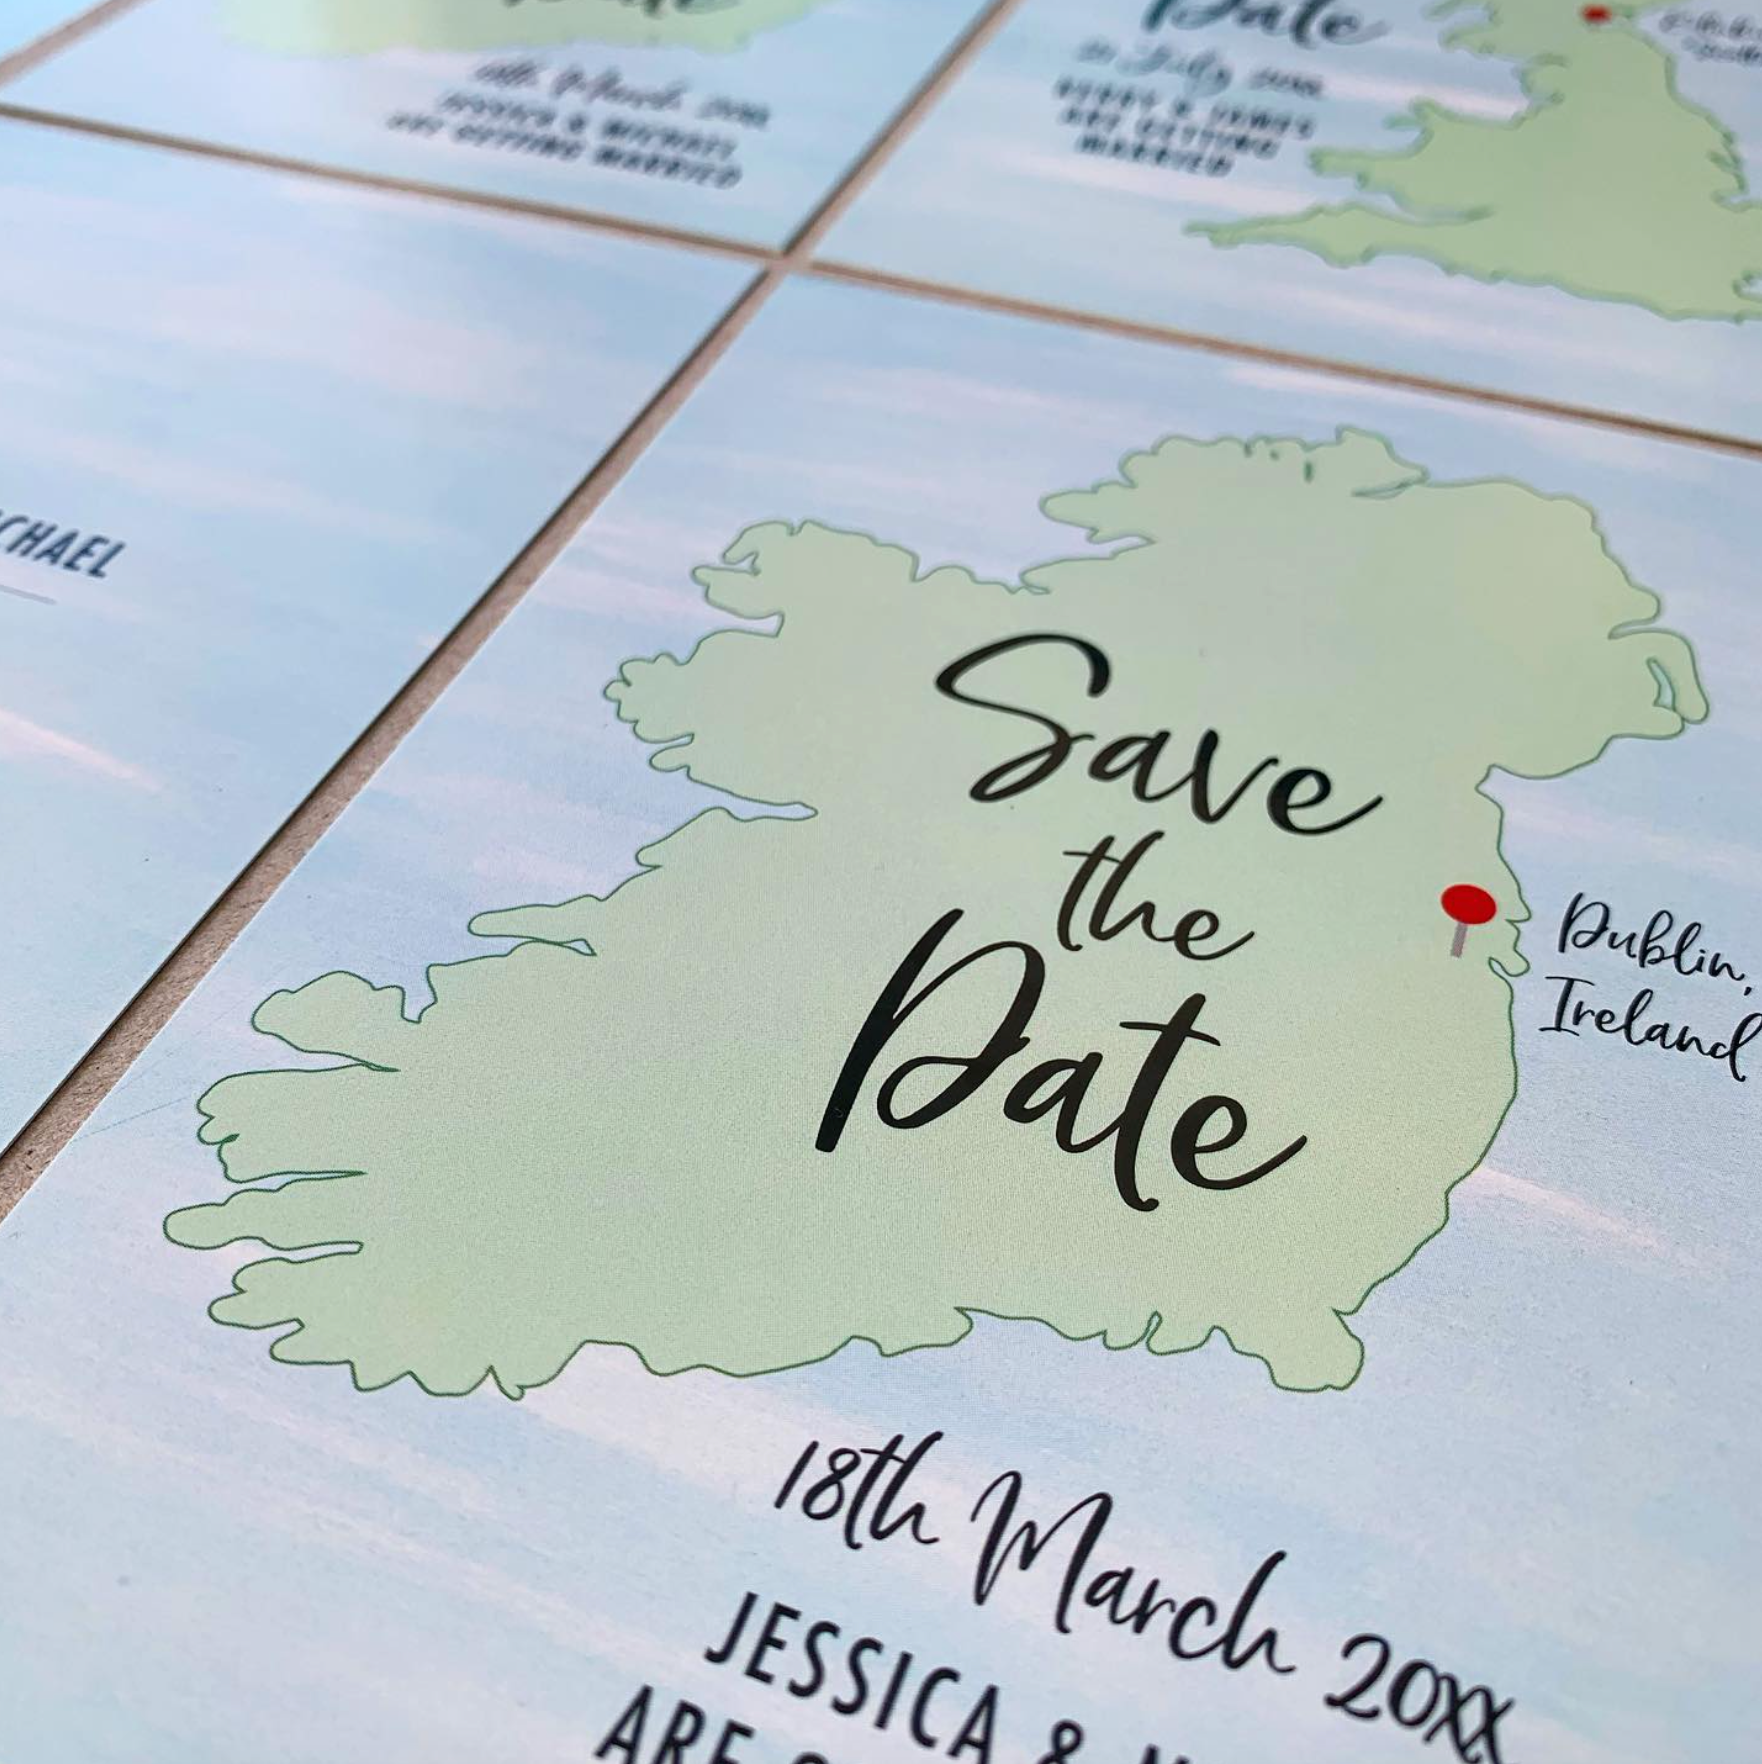 Date
March 20XX
JESSICA & MICHAEL
ARE GETTING MARRIED
Date
July 20XX
& JAMES
ARE GETTING
MARRIED
CHAEL
Save
the
Date
Dublin,
Ireland
18th March 20XX
JESSICA &
ARE